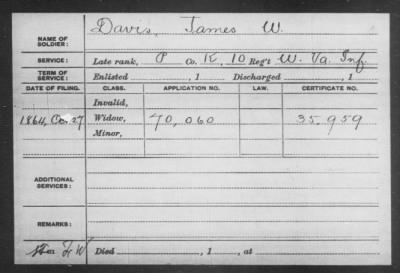 NAME OF SOLDIER: Davis, James W.
SERVICE: Late rank, P Co. K, 10 Reg't W. Va. Inf.
TERM OF SERVICE: Enlisted , 1 Discharged , 1
DATE OF FILING. CLASS. APPLICATION NO. LAW. CERTIFICATE NO.
Invalid,
1864, Oc. 27 Widow, 70,060 35.959
Minor,
ADDITIONAL SERVICES:
REMARKS:
Died , 1 , at